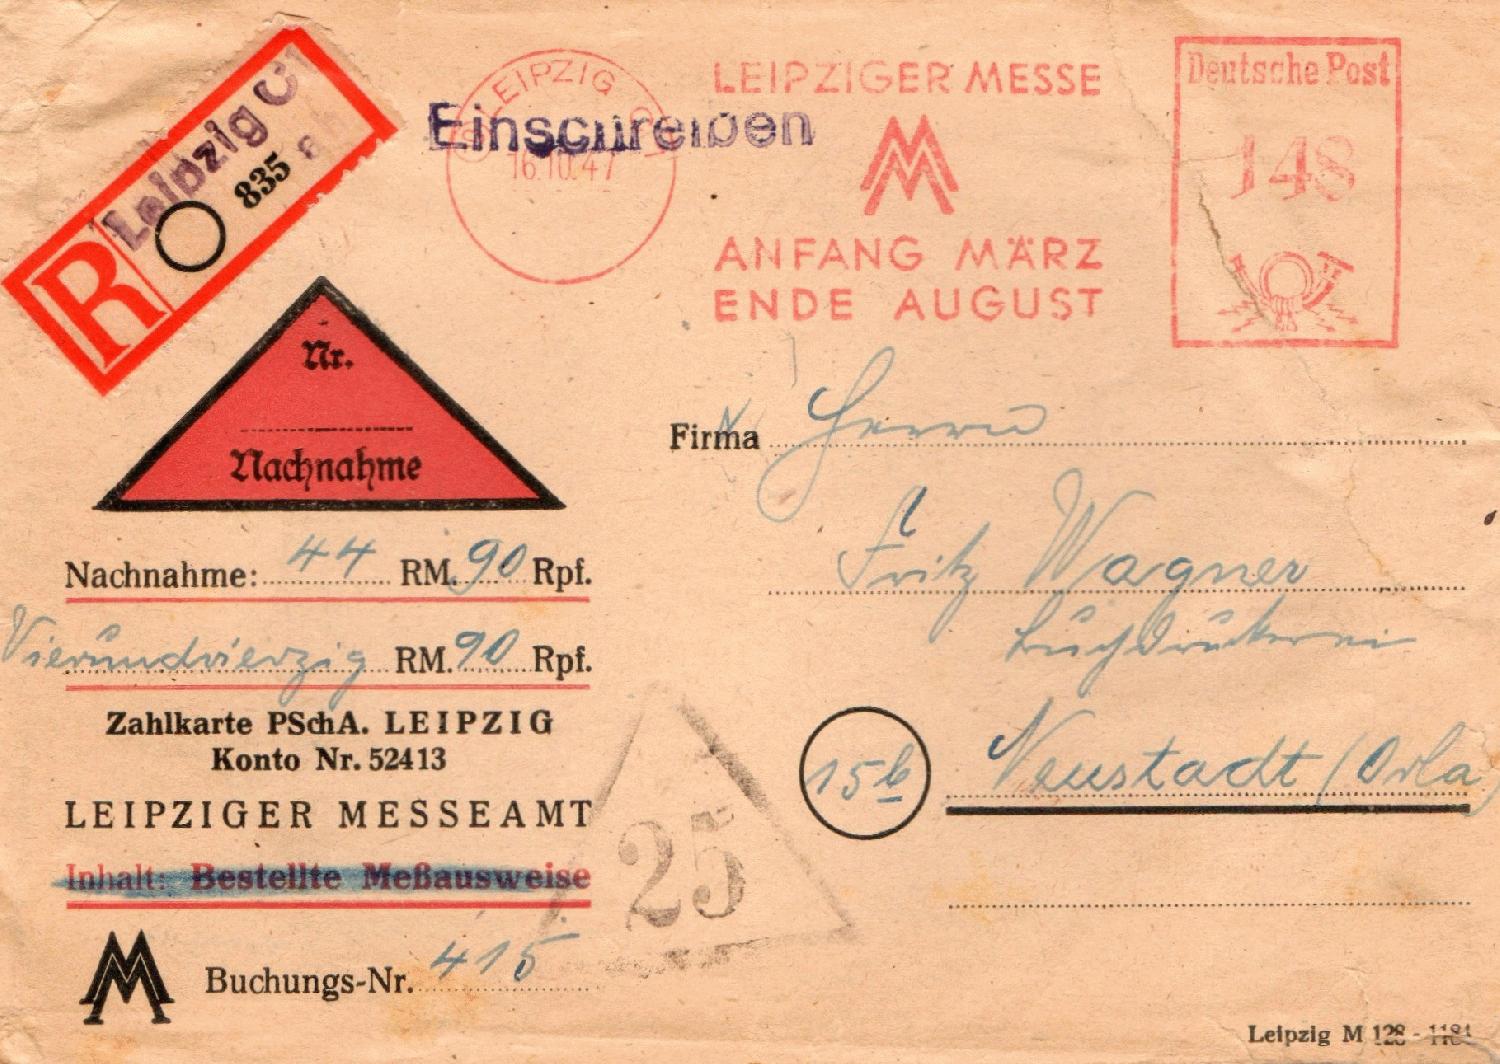 R
Leipzig C1
835
a
LEIPZIG C1
16.10.47
Einschreiben
LEIPZIGER MESSE
MM
ANFANG MÄRZ
ENDE AUGUST
Deutsche Post
148
Nr.
Nachnahme
Firma Herrn
Fritz Wagner
Buchdruckerei
15b Neustadt (Orla
Nachnahme: 44 RM. 90 Rpf.
Vierundvierzig RM. 90 Rpf.
Zahlkarte PSchA. LEIPZIG
Konto Nr. 52413
LEIPZIGER MESSEAMT
Inhalt: Bestellte Meßausweise
25
MM
Buchungs-Nr. 415
Leipzig M 128 - 1184